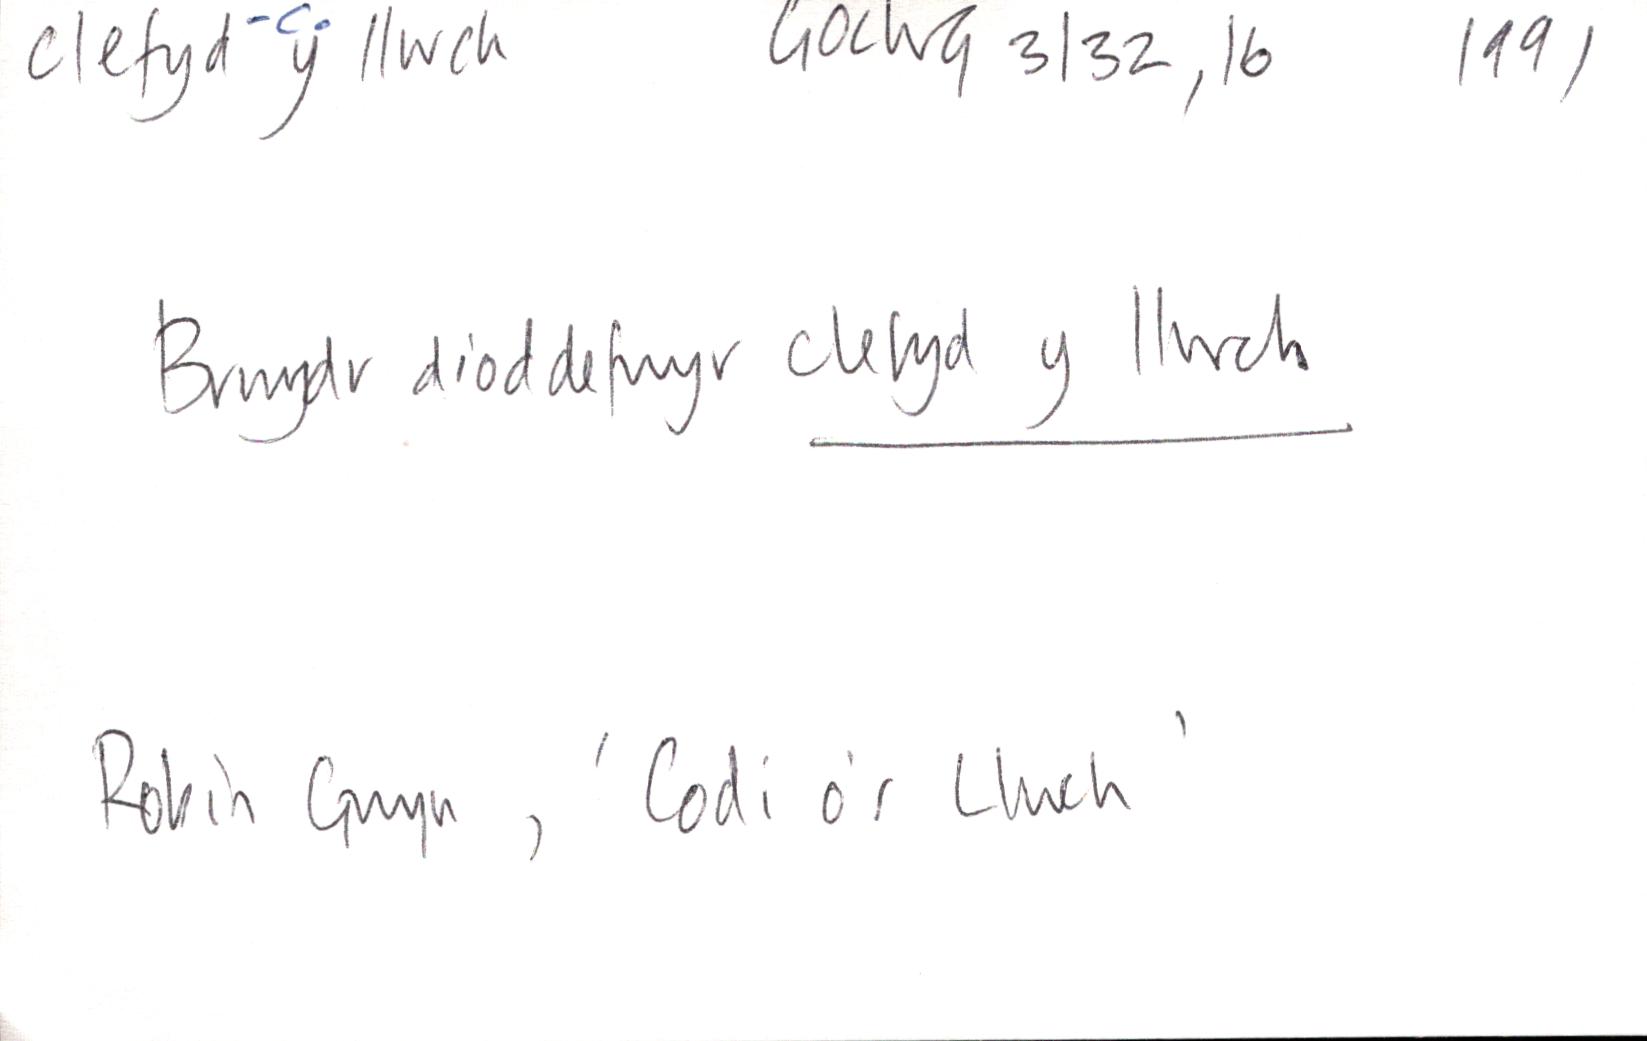 clefyd - c. y llwch GOLWG 3/32, 16 1991
Brwydr dioddefwyr clefyd y llwch
Robin Gwyn, 'Codi o'r Llwch'